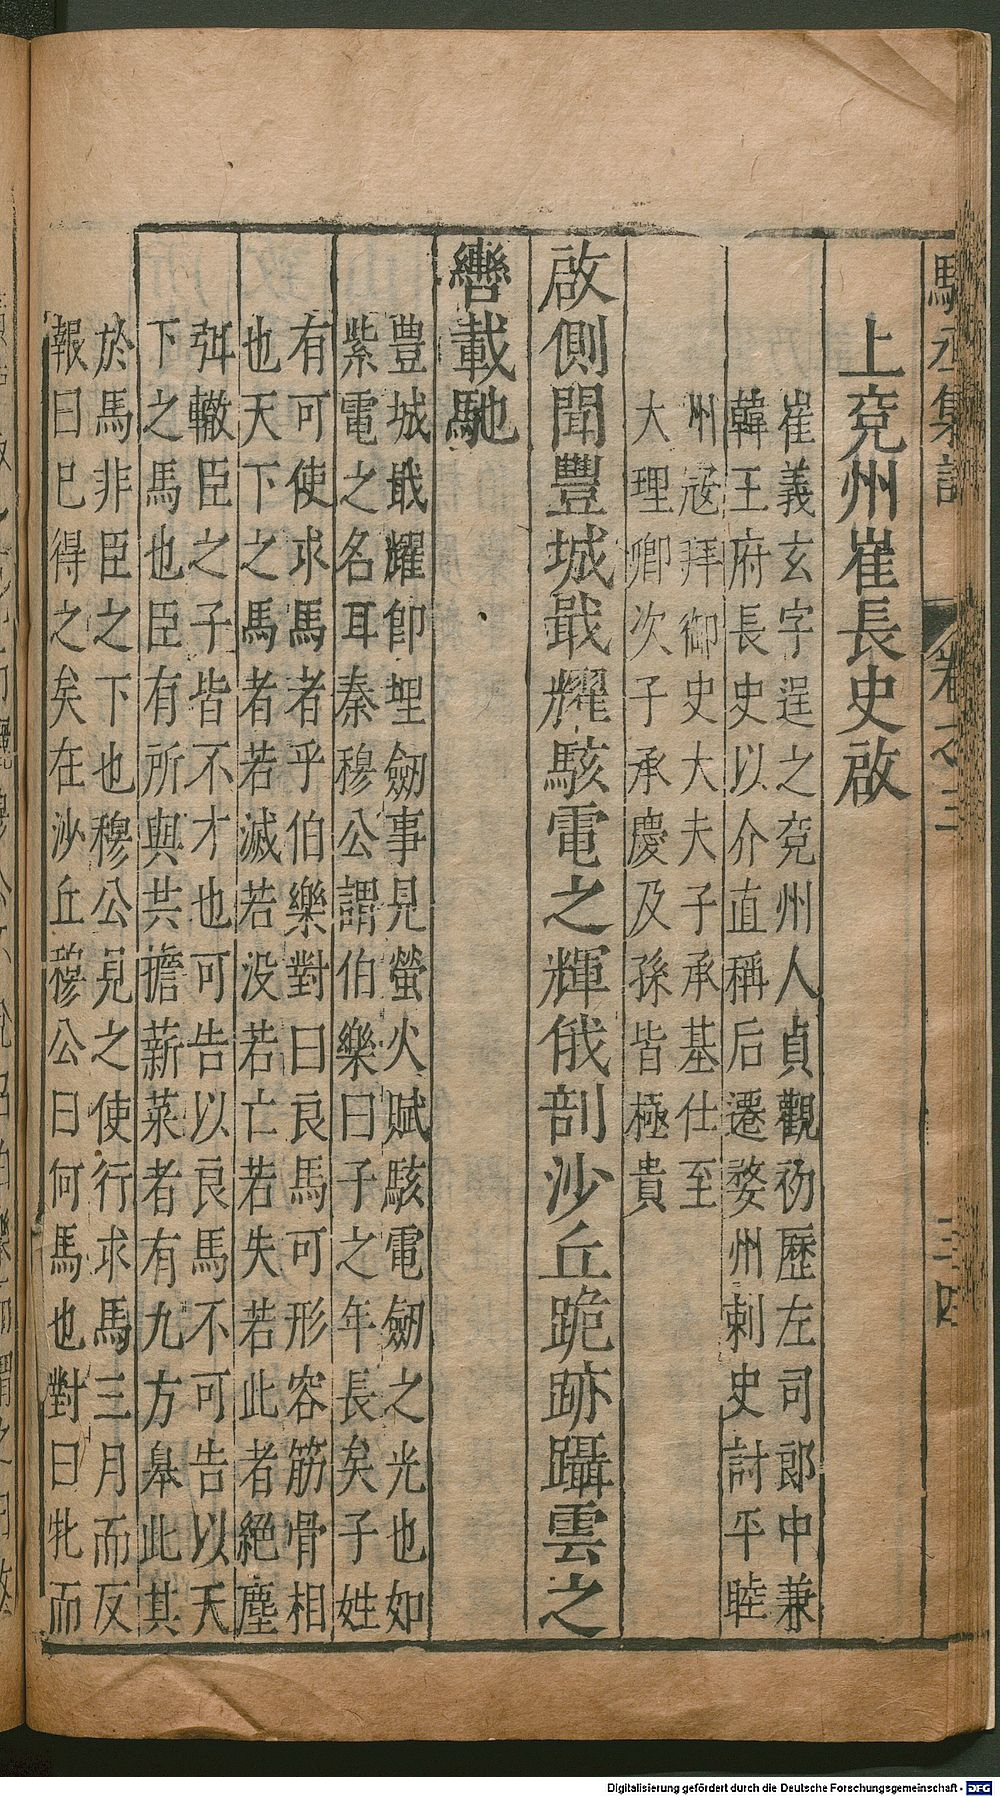 上兗州崔長史啟
崔義玄字逞之兗州人貞觀初歷左司郎中兼
韓王府長史以介直稱后遷婺州刺史討平睦
州寇拜御史大夫子承基仕至
大理卿次子承慶及孫皆極貴
啟側聞豐城戢耀駭電之輝俄剖沙丘跪跡躡雲之
轡載馳
豐城戢耀卽埋劒事見螢火賦駭電劒之光也如
紫電之名耳秦穆公謂伯樂曰子之年長矣子姓
有可使求馬者乎伯樂對曰良馬可形容筋骨相
也天下之馬者若滅若沒若亡若失若此者絕塵
弭轍臣之子皆不才也可告以良馬不可告以天
下之馬也臣有所與共擔薪菜者有九方皋此其
於馬非臣之下也穆公見之使行求馬三月而反
報曰已得之矣在沙丘穆公曰何馬也對曰牝而
卷之三
三四
Digitalisierung gefördert durch die Deutsche Forschungsgemeinschaft - DFG